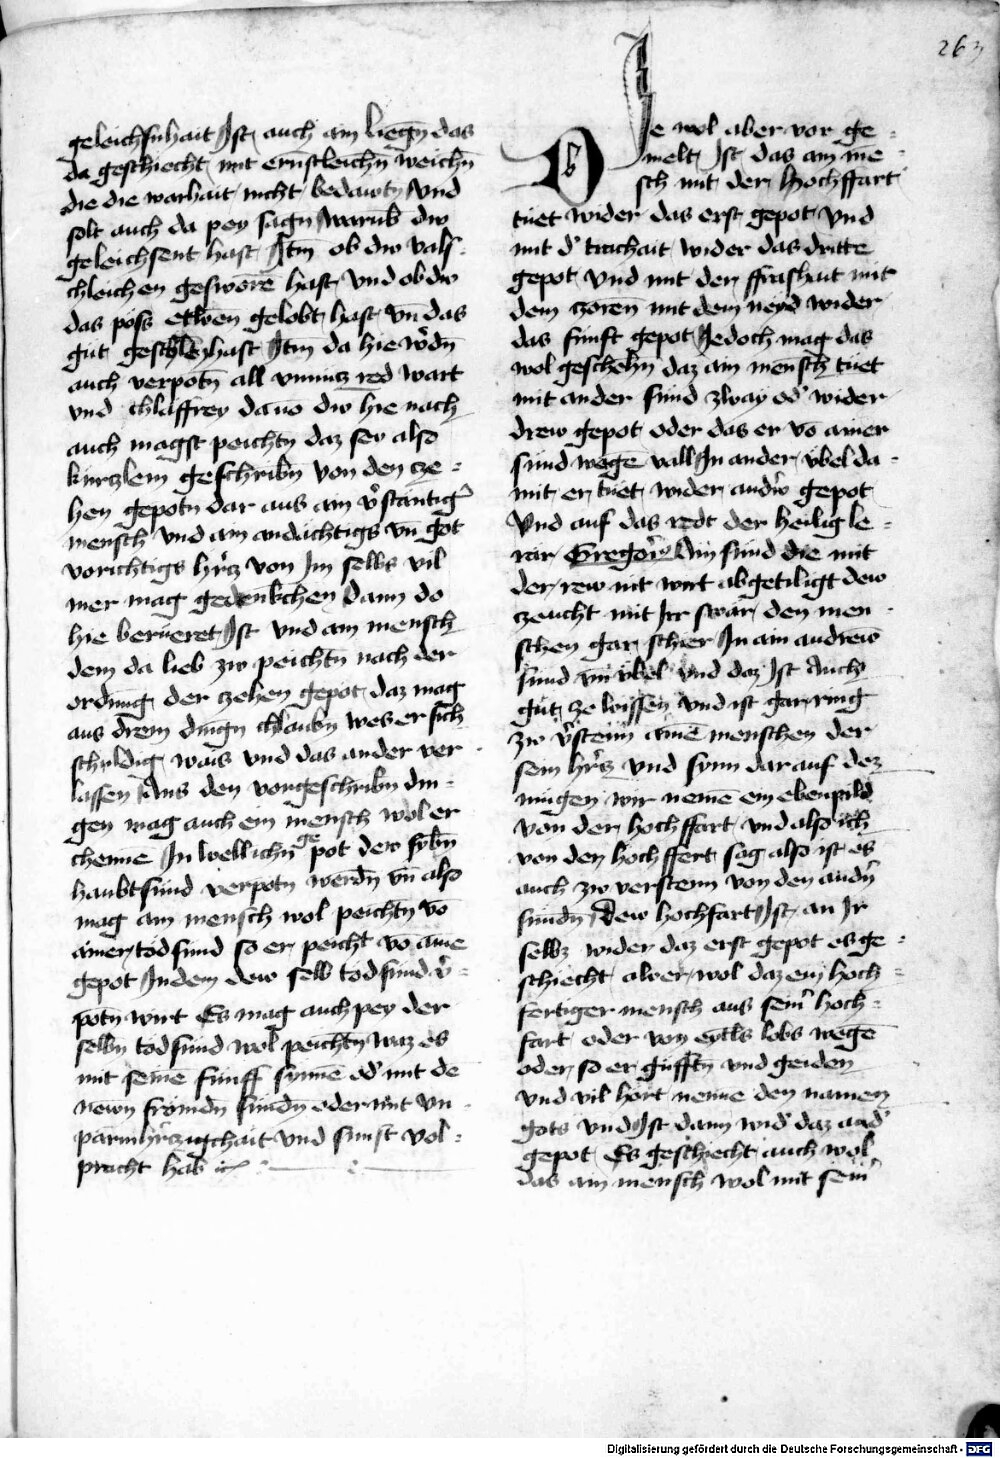 263
geleichsnhait Ist auch am liegn̄ das
da geschiecht mit ernstleichn̄ weichn̄
die die warhait nicht bedawtn̄ Und
solt auch da pey sagn̄ Warub dw
geleichsent hast Itm̄ ob dw vals=
chleichen gesworē hast vnd ob dw
das pöss etwen gelobt hast vn̄ das
gut hast Itm̄ da hie
auch verpotn̄ all vnnucz red wart
vnd chlaffrey dauō dw hie nach
auch magst peichtn daz sey also
kurczlem geschribn von den cze=
hen gepotn dar aus am
mensch vnd am andachtigs vn̄ got
vorichtigs hercz von Im selbs vil
mer mag gedenkchen dann do
hie berueret Ist vnd am mensch
dem da lieb zw peichtn̄ nach der
ordnūg der czehen gepot daz mag
aus drein dingn̄ wes er sich
schuldig wais vnd das ander ver
lassen Aus den vorgeschribn din=
gen mag auch ein mensch wol er
chenne In wellichn gepot dew sybn̄
haubtsund verpotn werdn̄ vn̄ also
mag am mensch wol peichtn vō
ainer todsund so er peicht vō aine
gepot Indem dew selb todsund v̄=
potn wirt Es mag auch pey der
selbn todsund wol peichtn waz es
mit seinē funff synnē od' mit de
newn frömdn sundn oder mit vn
parmherczigchait vnd sunst vol=
pracht hab
Die wol aber vor ge=
melt Ist das am me
sch mit der Hochffart
tuet wider das erst gepot vnd
mit d' trachait wider das dritte
gepot vnd mit der ffrashait mit
dem zorēn mit dem neyd wider
das funft gepot Iedoch mag das
wol geschehn daz am mensch tuet
mit ander sund zway od' wider
drew gepot oder das er vō ainer
sund wege vall In ander vbel da=
mit er tuet wider andr̄ gepot
Vnd auf das redt der heilig le=
rar Gregori' Ain sund die mit
der rew nit wirt abgetiligt dew
czeucht mit Irr swär den men=
schen gar schier In am andrew
sund vn̄ vbel vnd daz Ist Auch
gut ze wissen vnd ist gar ring
zw v'steen aine menschen der
sein hercz vnd synn darauf dez
mugen wir nemē ein ebenpild
von der hochffart vnd also ich
von den hochffert sag also ist es
auch zw versteen von den andn̄
sundn Dew hochfart Ist an Ir
selbz wider daz erst gepot es ge=
schiecht aber wol daz ein hoch=
fertiger mensch aus sein' hoch=
fart oder von eytls lobs wegē
oder so er gufftn̄ vnd geiden
vnd vil hort nenne den namen
gots vnd Ist dann wid' daz and'
gepot Es geschiecht auch wol
das am mensch wol mit sein'
Digitalisierung gefördert durch die Deutsche Forschungsgemeinschaft - DFG